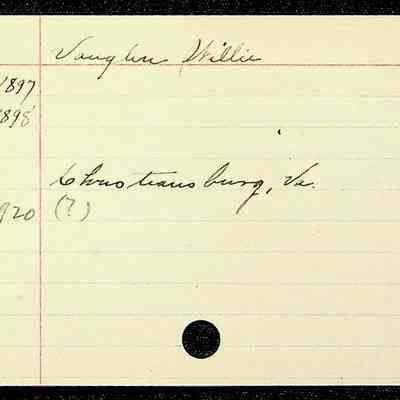 Vaughn Willie
1897
1898
Christiansburg, Va.
920 (?)